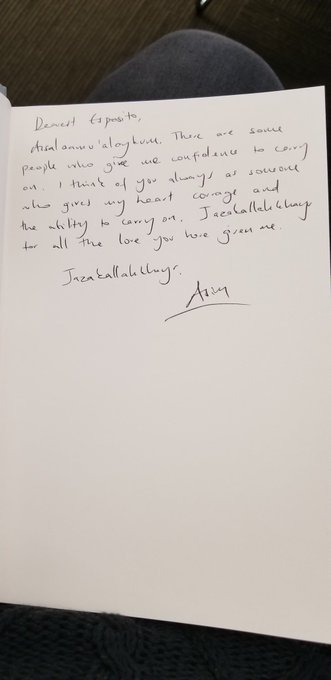 Dearest Esposito,
Assalaamu'alaykum. There are some
people who give me confidence to carry
on. I think of you always as someone
who gives my heart courage and
the ability to carry on. Jazakallahkhayr
for all the love you have given me.
Jazakallahkhayr.